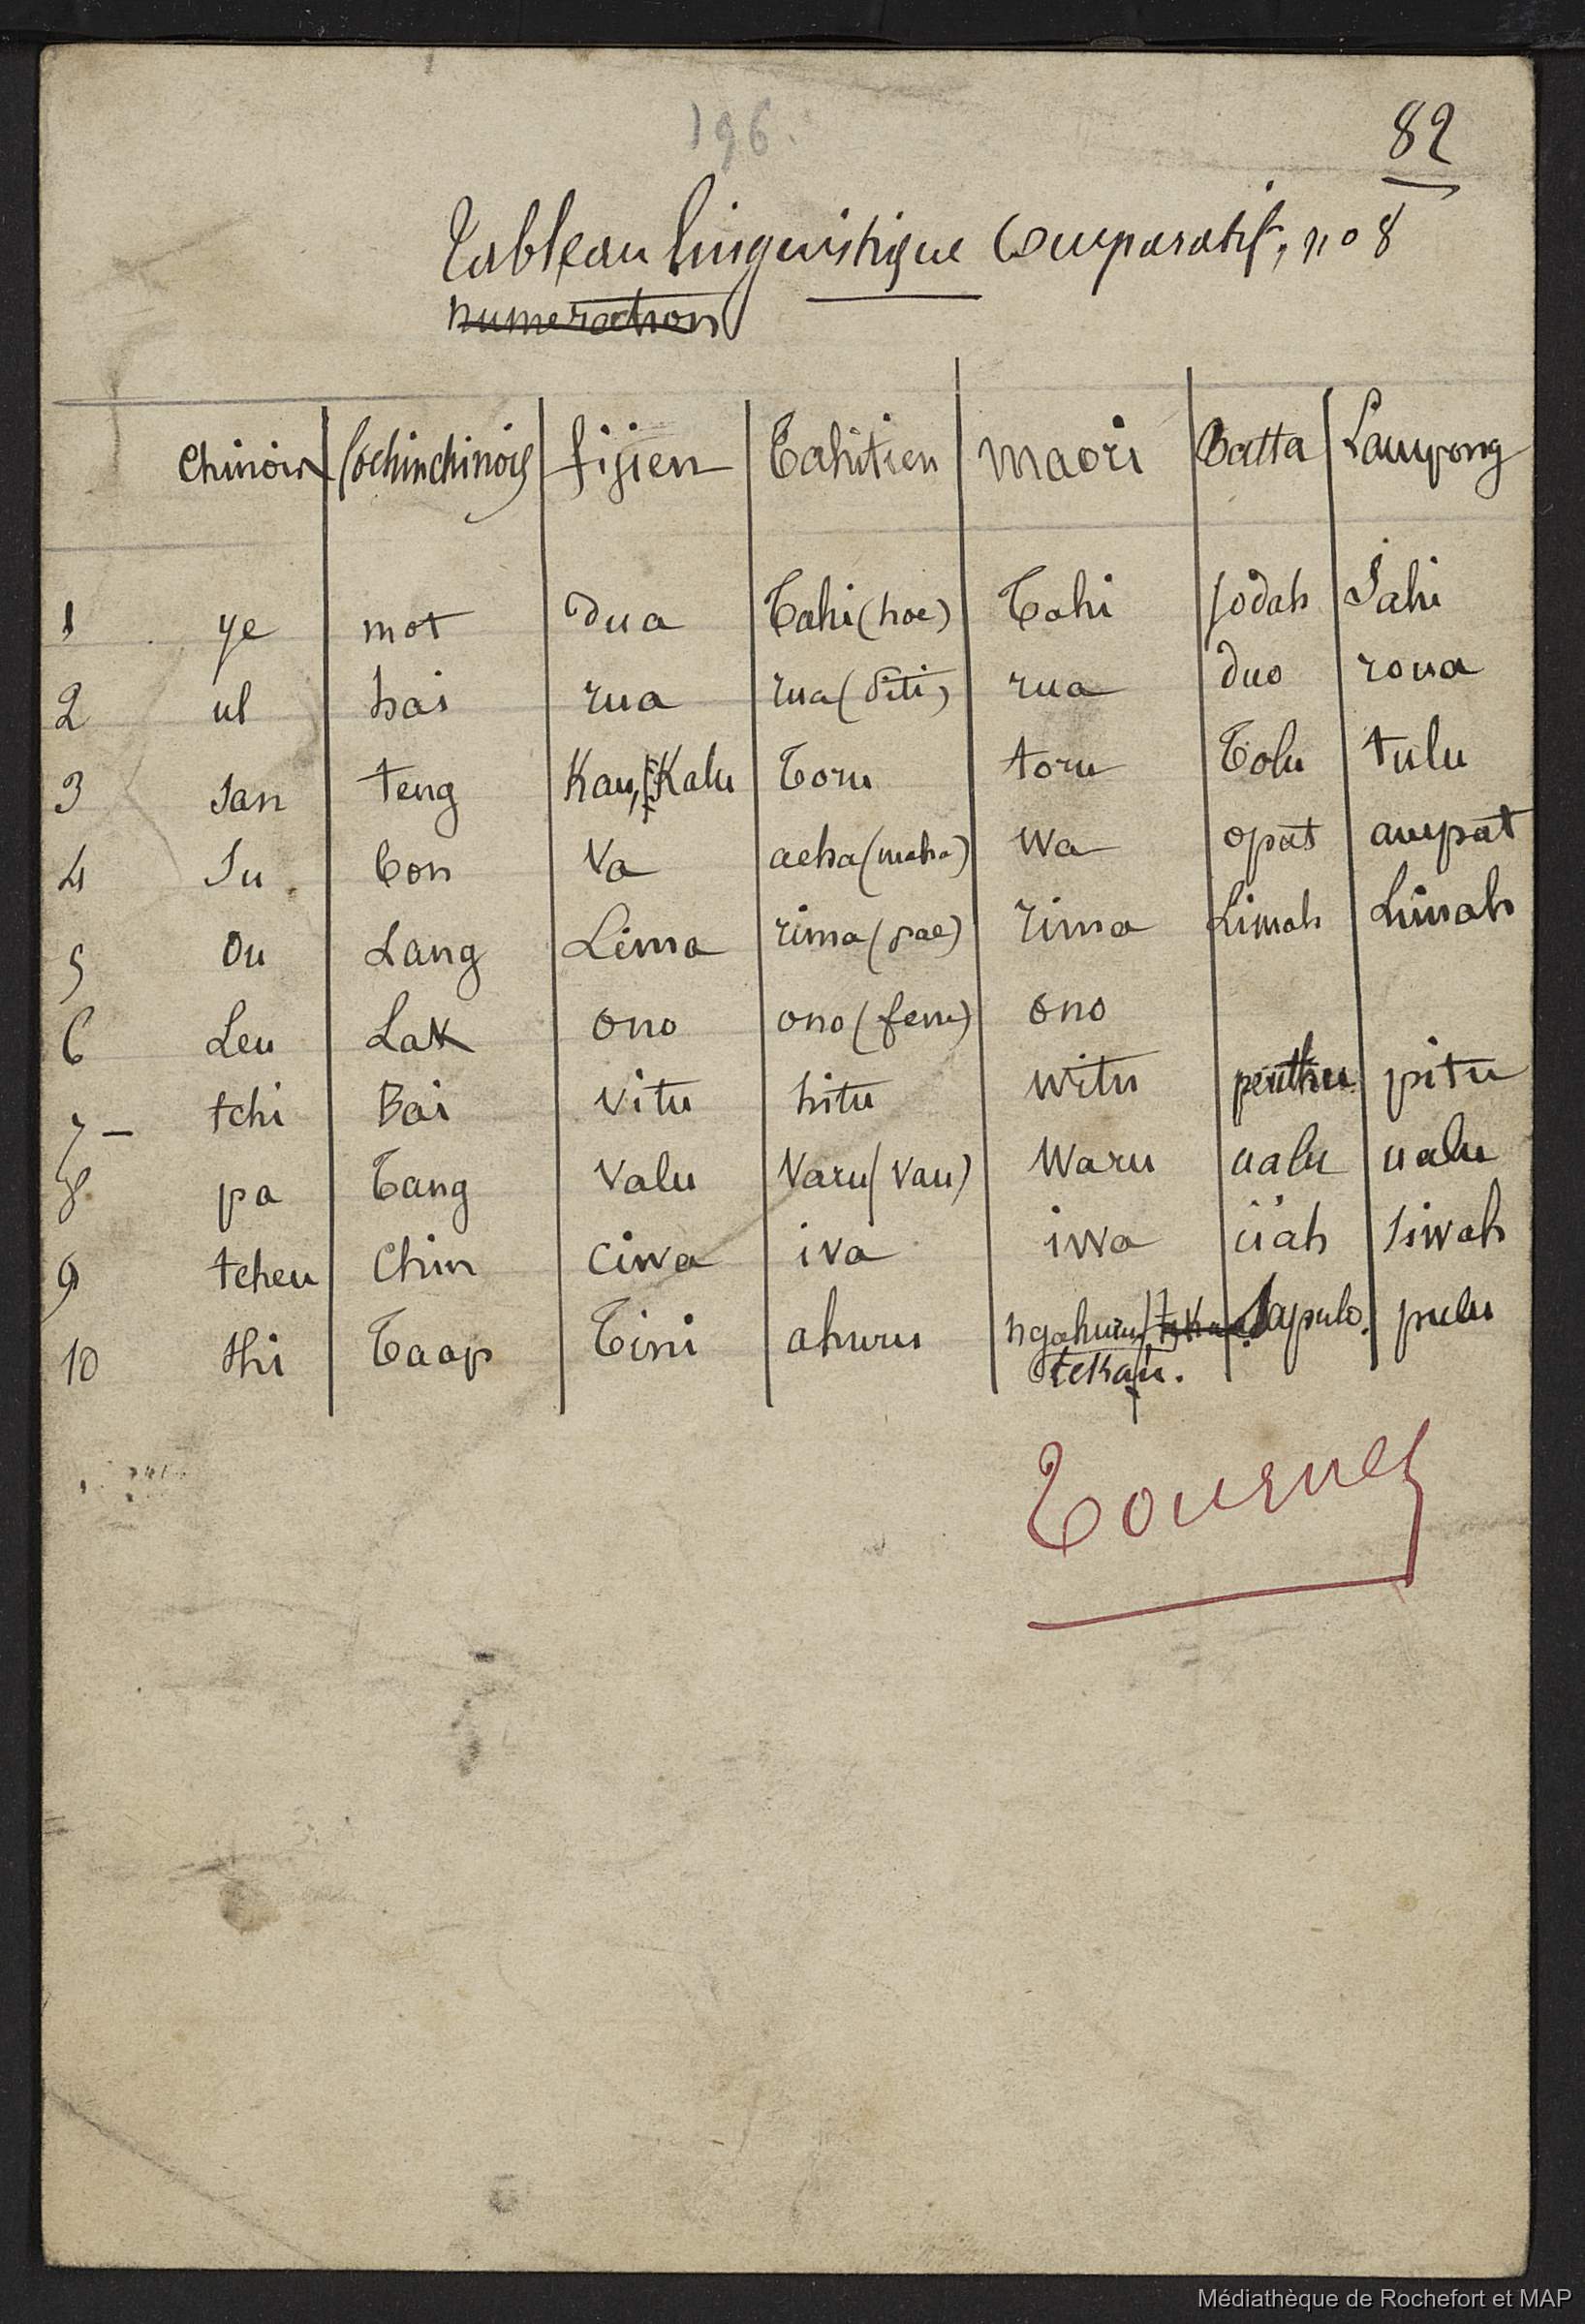 196.
82
Tableau linguistique Comparatif, no 8
numeration
Chinois Cochinchinois fijien Tahitien maori Batta Lampong
1 ye mot dua Tahi (hoe) Tahi Sodah Sahi
2 ul hai rua rua (Piti) rua duo roua
3 san teng Kau, Kalu Toru toru Tolu tulu
4 Su bon Va aeha (maha) wa opat ampat
5 Ou Lang Lima rima (pae) rima Limah Limah
6 Leu Lak ono ono (fene) ono
7 tchi Bai vitu hitu witu pitu
8 pa Tang valu Varu (Vau) Waru ualu ualu
9 tcheu Chin Ciwa iva iwa siah siwah
10 thi Taap Tini ahuru ngahuru Sapulo. pulu
tekau.
Tournez
Médiathèque de Rochefort et MAP